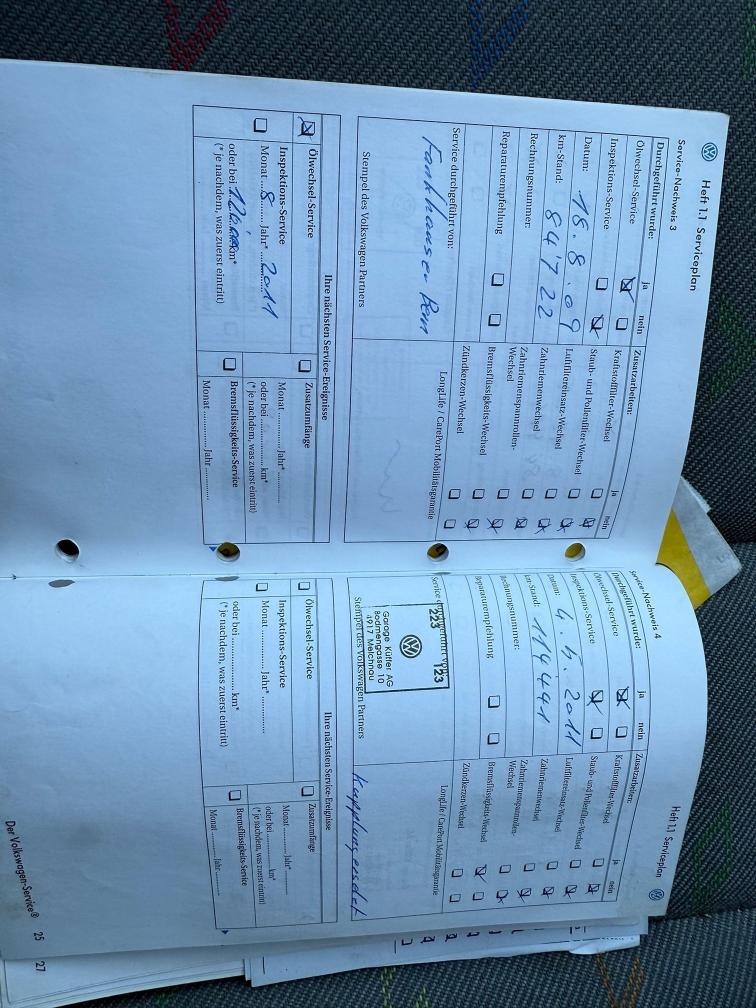 Heft 1.1 Serviceplan
Service-Nachweis 3
Durchgeführt wurde: ja nein
Ölwechsel-Service
Inspektions-Service
Datum: 18.8.09
km-Stand: 84'722
Rechnungsnummer:
Reparaturempfehlung
Service durchgeführt von:
Stempel des Volkswagen Partners
Zusatzarbeiten: ja nein
Kraftstofffilter-Wechsel
Staub- und Pollenfilter-Wechsel
Luftfiltereinsatz-Wechsel
Zahnriemenwechsel
Zahnriemenspannrollen-
Wechsel
Bremsflüssigkeits-Wechsel
Zündkerzen-Wechsel
LongLife / CarePort Mobilitätsgarantie
Ihre nächsten Service-Ereignisse
Ölwechsel-Service
Inspektions-Service
Monat 8 Jahr* 2011
oder bei km*
(* je nachdem, was zuerst eintritt)
Zusatzumfänge
Monat Jahr*
oder bei km*
(* je nachdem, was zuerst eintritt)
Bremsflüssigkeits-Service
Monat Jahr
Heft 1.1 Serviceplan
Service-Nachweis 4
Durchgeführt wurde: ja nein
Ölwechsel-Service
Inspektions-Service
Datum: 4.5.2011
km-Stand: 114441
Rechnungsnummer:
Reparaturempfehlung
Service durchgeführt von:
223 123
Garage Küffer AG
Badmengasse 10
4917 Melchnau
Stempel des Volkswagen Partners
Zusatzarbeiten: ja nein
Kraftstofffilter-Wechsel
Staub- und Pollenfilter-Wechsel
Luftfiltereinsatz-Wechsel
Zahnriemenwechsel
Zahnriemenspannrollen-
Wechsel
Bremsflüssigkeits-Wechsel
Zündkerzen-Wechsel
LongLife / CarePort Mobilitätsgarantie
Kupplung ersetzt
Ihre nächsten Service-Ereignisse
Ölwechsel-Service
Inspektions-Service
Monat Jahr*
oder bei km*
(* je nachdem, was zuerst eintritt)
Zusatzumfänge
Monat Jahr*
oder bei km*
(* je nachdem, was zuerst eintritt)
Bremsflüssigkeits-Service
Monat Jahr
Der Volkswagen-Service® 25
27